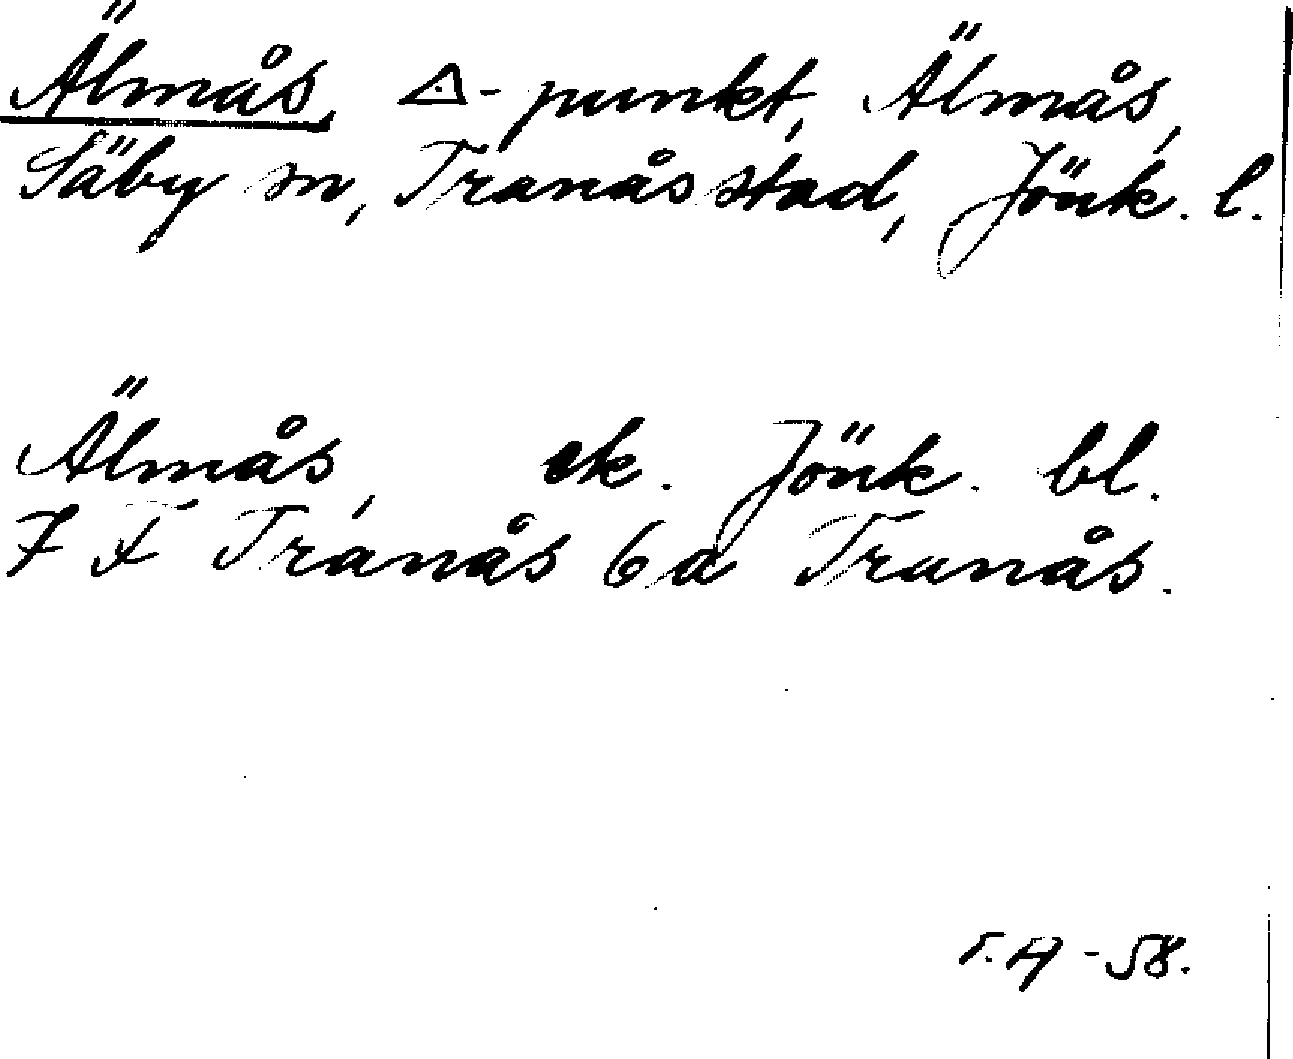 Älmås, △-punkt, Älmås,
Säby sn, Tranås stad, Jönk. l.
Älmås, ek. Jönk. bl.
7 F Tranås 6a Tranås.
-58.